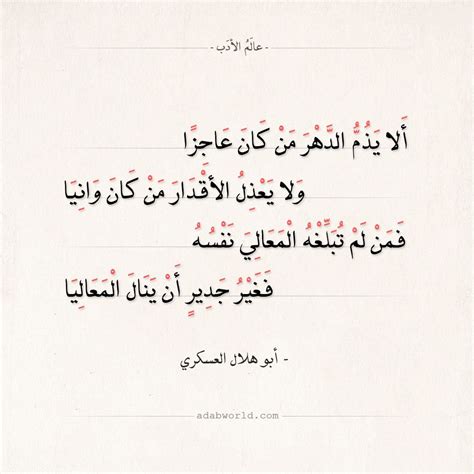 - عالَمُ الأدَب -
أَلا يَذُمُّ الدَّهْرَ مَنْ كَانَ عَاجِزًا
وَلا يَعْذِلُ الأَقْدَارَ مَنْ كَانَ وَانِيَا
فَمَنْ لَمْ تُبَلِّغْهُ الْمَعَالِيَ نَفْسُهُ
فَغَيْرُ جَدِيرٍ أَنْ يَنَالَ الْمَعَالِيَا
- أبو هلال العسكري
adabworld.com